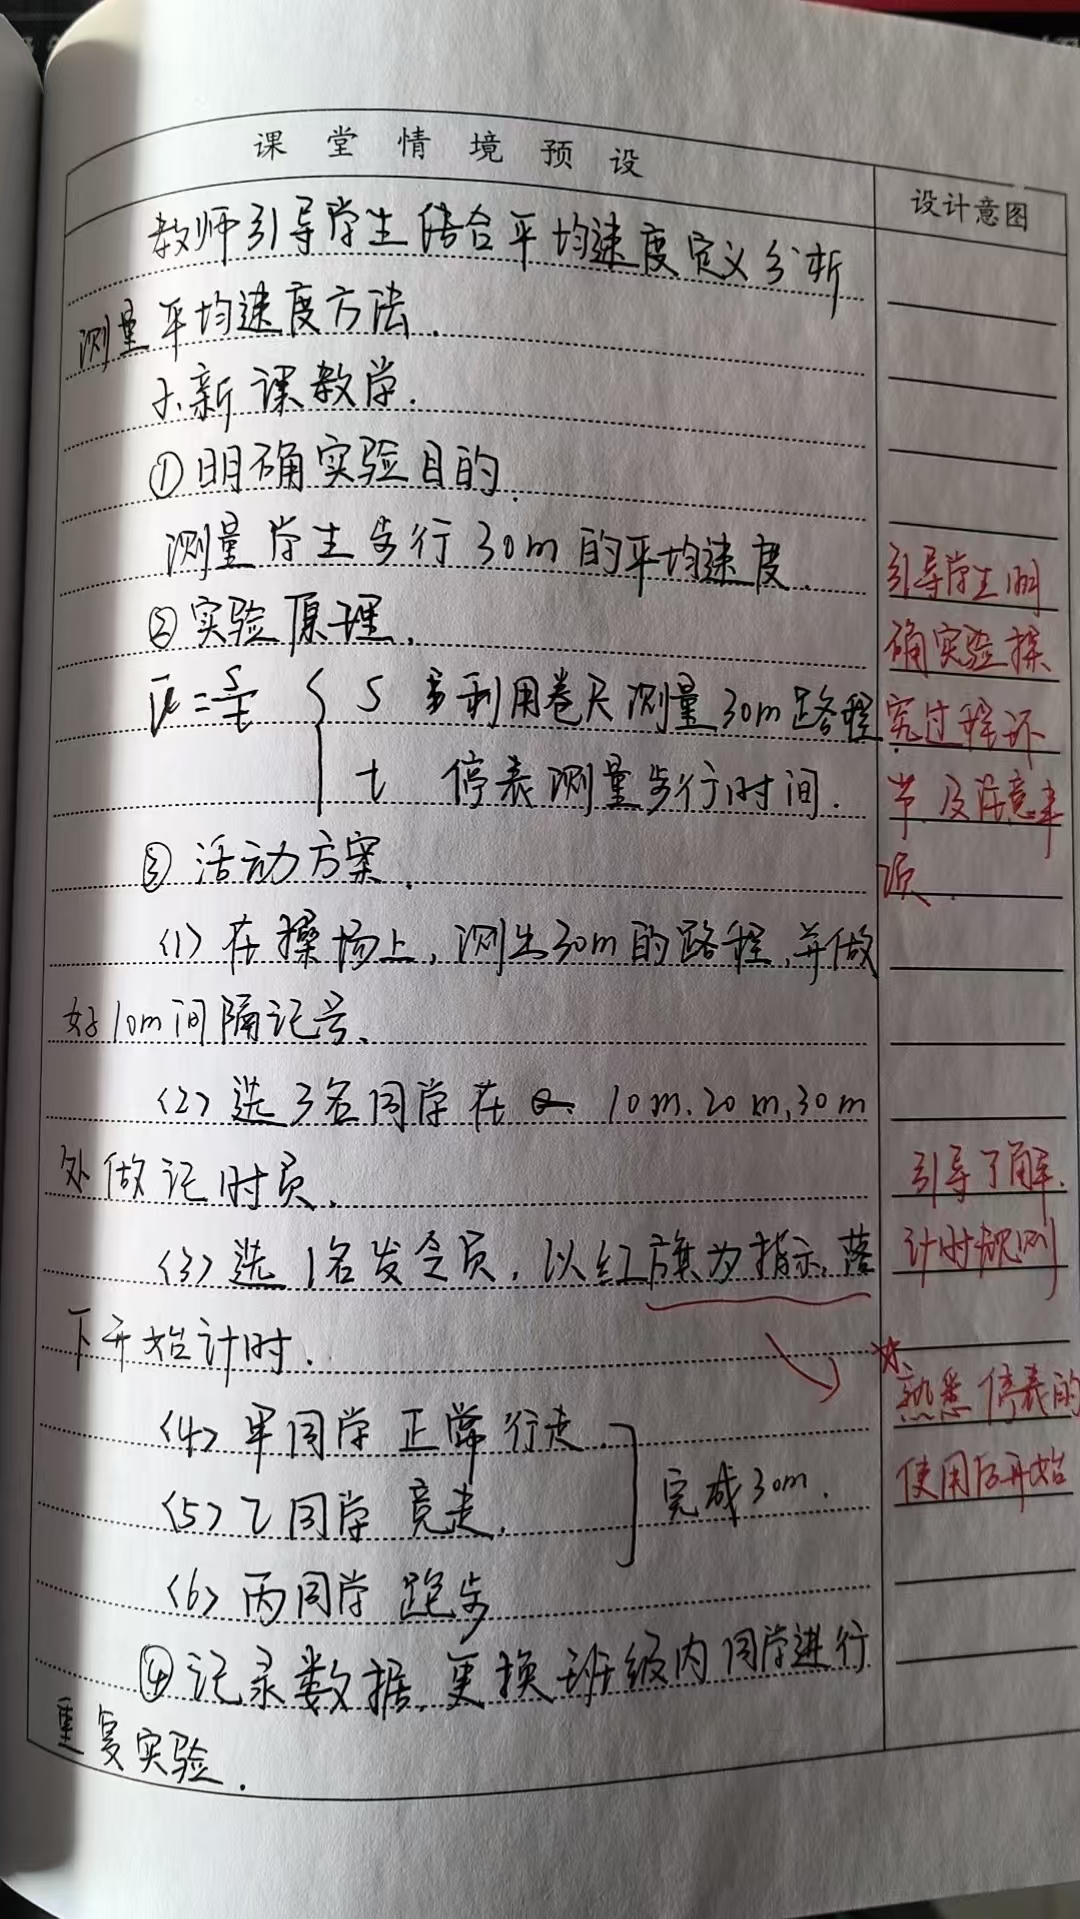 课堂情境预设
设计意图
教师引导学生结合平均速度定义分析
测量平均速度方法.
2.新课教学.
①明确实验目的.
测量学生步行30m的平均速度.
②实验原理.
v̄=s/t { S 利用卷尺测量30m路程.
t 停表测量步行时间.
③活动方案.
(1)在操场上,测出30m的路程,并做
好10m间隔记号、
(2)选3名同学在 10m.20m,30m
处做记时员.
(3)选1名发令员,以红旗为指示,落
下开始计时.
(4)甲同学正常行走.
(5)乙同学竞走.
完成30m.
(6)丙同学跑步
④记录数据,更换班级内同学进行
重复实验.
引导学生明
确实验探
究过程环
节及注意事
项.
引导了解.
计时规则
熟悉停表的
使用后开始